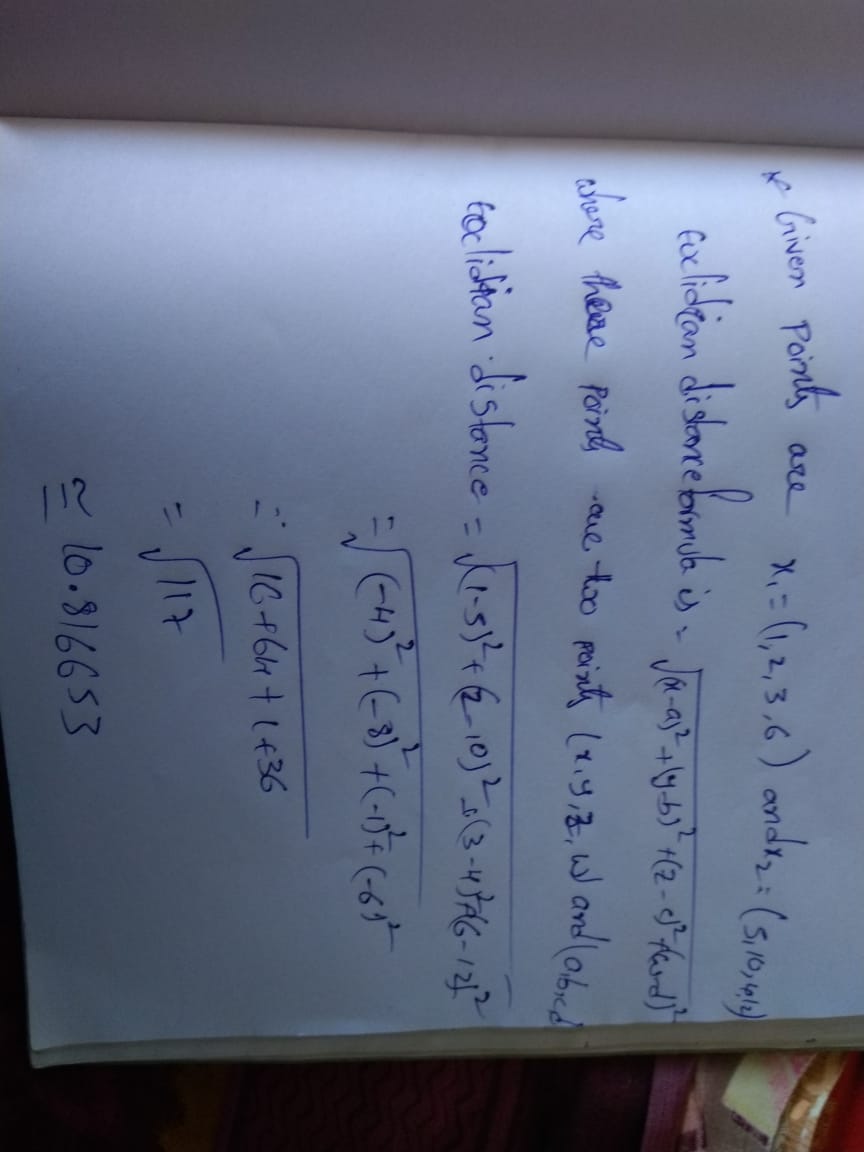 * Given Points are x₁ = (1, 2, 3, 6) and x₂ = (5, 10, 4, 12)
Euclidian distance formula is = √(x-a)² + (y-b)² + (z-c)² + (w-d)²
where these points are two points (x, y, z, w) and (a, b, c, d
Euclidian distance = √(1-5)² + (2-10)² + (3-4)² + (6-12)²
= √(-4)² + (-8)² + (-1)² + (-6)²
= √16 + 64 + 1 + 36
= √117
≃ 10.816653